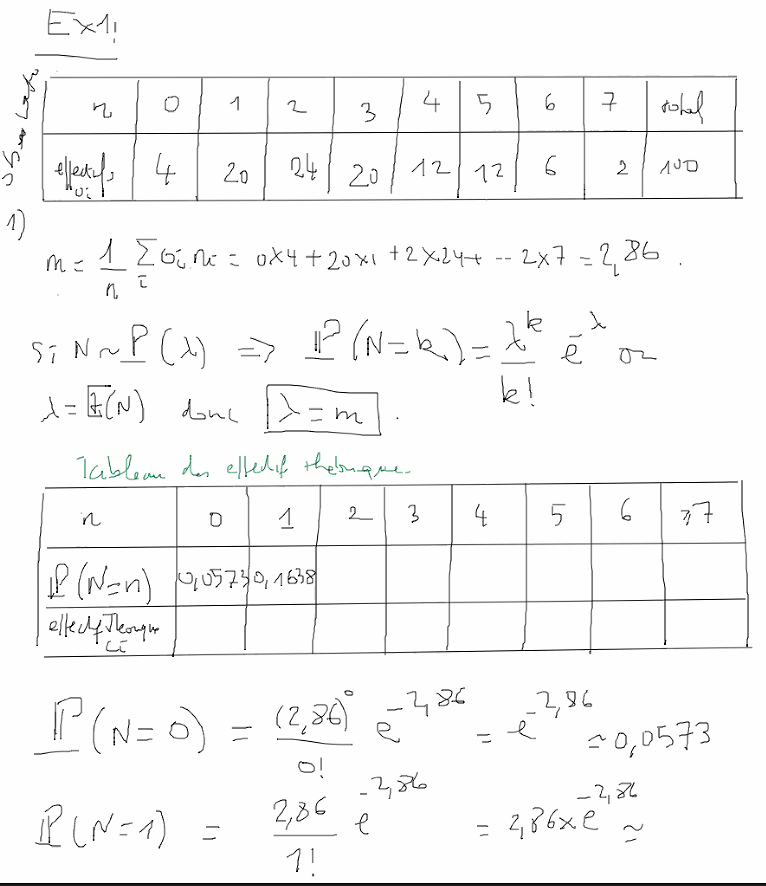 Ex1!
n 0 1 2 3 4 5 6 7 total
effectifs oi 4 20 24 20 12 12 6 2 100
1)
m = 1/n Σi oi ni = 0x4 + 20x1 + 2x24 + -- 2x7 = 2,86 .
Si N ~ P(λ) => P(N=k) = λ^k/k! e^-λ or
λ = E(N) donc λ = m .
Tableau des effectif théorique.
n 0 1 2 3 4 5 6 ≥7
P(N=n) 0,0573 0,1638
effectif Théorique Ci
P(N=0) = (2,86)^0/0! e^-2,86 = e^-2,86 ~ 0,0573
P(N=1) = 2,86/1! e^-2,86 = 2,86xe^-2,86 ≃